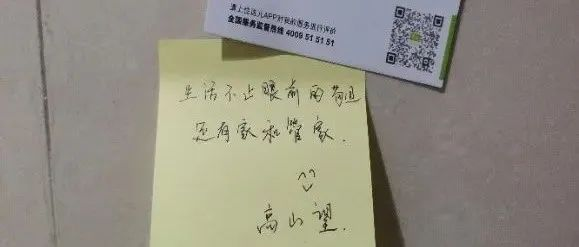 请上住这儿APP对我的服务进行评价
全国服务监督热线 4009 51 51 51
生活不止眼前的苟且
还有家和管家.
高山望.